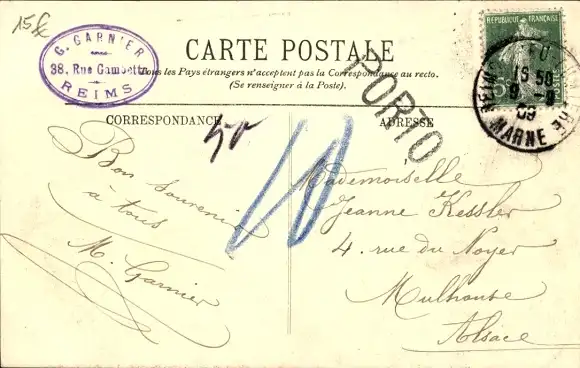 15€
G. GARNIER
38, Rue Gambetta
REIMS
CARTE POSTALE
Tous les Pays étrangers n'acceptent pas la Correspondance au recto.
(Se renseigner à la Poste).
REPUBLIQUE FRANÇAISE
REIMS
15 50
9 - 8
09
MARNE
PORTO
CORRESPONDANCE
50
ADRESSE
10
Bon souvenir
à tous
M. Garnier
Mademoiselle
Jeanne Kessler
4. rue du Noyer
Mulhouse
Alsace